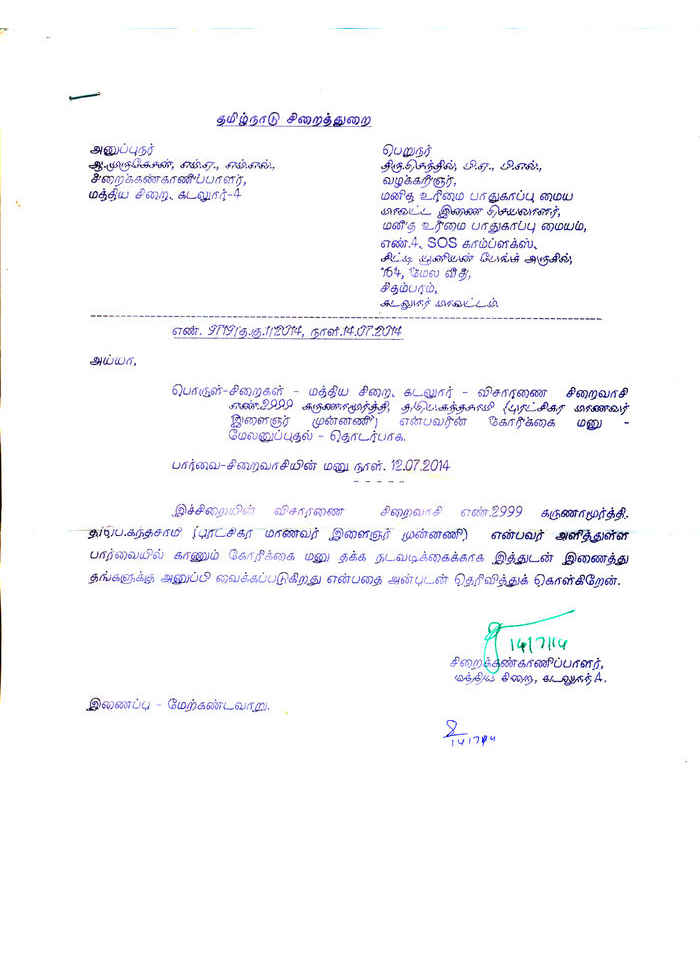 தமிழ்நாடு சிறைத்துறை
அனுப்புநர்
ஆ.முருகேசன், எம்.ஏ., எம்.எல்.,
சிறைக்கண்காணிப்பாளர்,
மத்திய சிறை, கடலூர்-4
பெறுநர்
திரு.செந்தில், பி.ஏ., பி.எல்.,
வழக்கறிஞர்,
மனித உரிமை பாதுகாப்பு மைய
மாவட்ட இணை செயலாளர்,
மனித உரிமை பாதுகாப்பு மையம்,
எண்.4, SOS காம்ப்ளக்ஸ்,
சிட்டி யூனியன் பேங்க் அருகில்,
164, மேல வீதி,
சிதம்பரம்,
கடலூர் மாவட்டம்.
எண். 9719/த.கு.1/2014, நாள்.14.07.2014
அய்யா,
பொருள்-சிறைகள் - மத்திய சிறை, கடலூர் - விசாரணை சிறைவாசி
எண்.2999 கருணாமூர்த்தி, த/பெ.கந்தசாமி (புரட்சிகர மாணவர்
இளைஞர் முன்னணி) என்பவரின் கோரிக்கை மனு -
மேலனுப்புதல் - தொடர்பாக.
பார்வை-சிறைவாசியின் மனு நாள். 12.07.2014
இச்சிறையின் விசாரணை சிறைவாசி எண்.2999 கருணாமூர்த்தி,
த/பெ.கந்தசாமி (புரட்சிகர மாணவர் இளைஞர் முன்னணி) என்பவர் அளித்துள்ள
பார்வையில் காணும் கோரிக்கை மனு தக்க நடவடிக்கைக்காக இத்துடன் இணைத்து
தங்களுக்கு அனுப்பி வைக்கப்படுகிறது என்பதை அன்புடன் தெரிவித்துக் கொள்கிறேன்.
14/7/14
சிறைக்கண்காணிப்பாளர்,
மத்திய சிறை, கடலூர்-4.
இணைப்பு - மேற்கண்டவாறு.
14/7/14